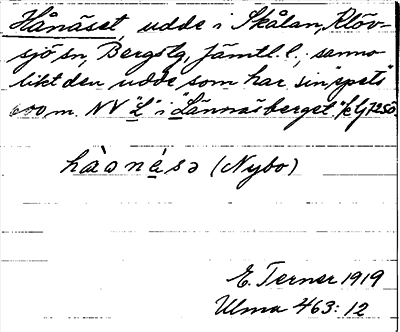 Hånäset, udde i Skålan, Klöv-
sjö sn, Bergs tg, Jämtl. l.; sanno-
likt den udde som har sin "spets"
600 m. NV "L" i "Lännäsberget".
hå̀ǝnä́sǝ (Nybo)
E. Terner 1919
Ulma 463:12